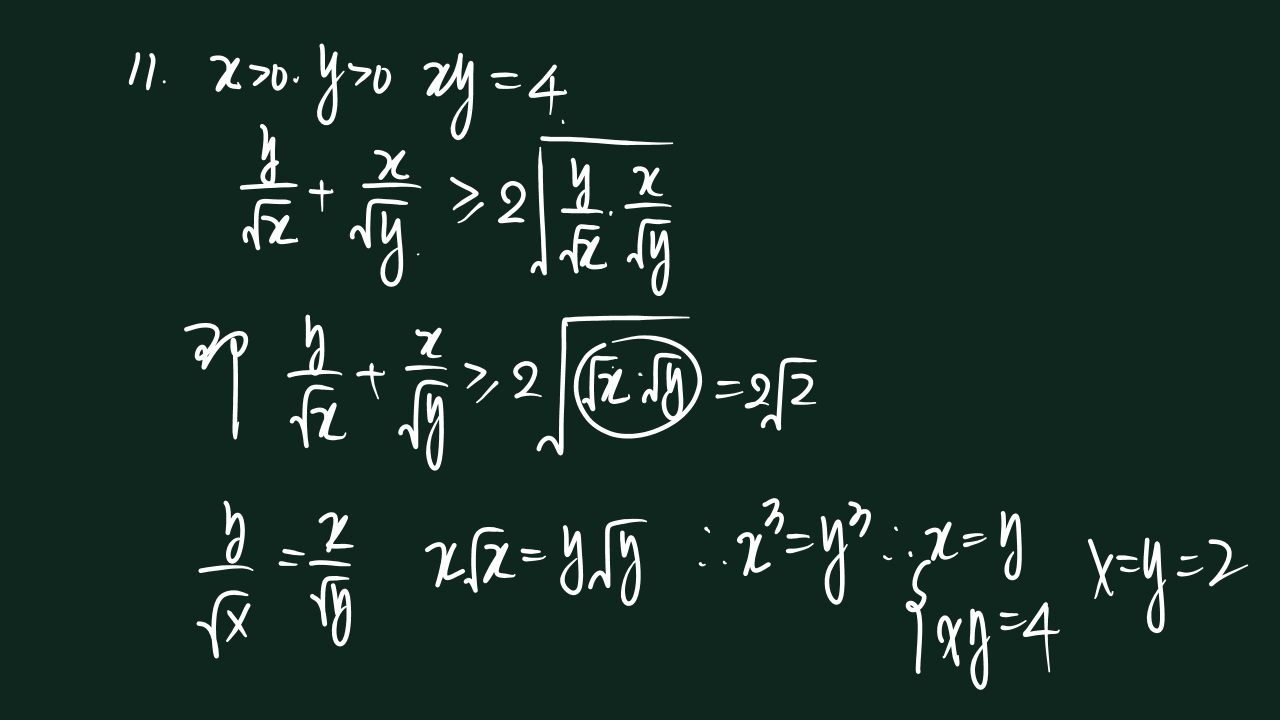 11. x>0. y>0 xy=4
y/√x + x/√y ≥ 2√(y/√x · x/√y)
即 y/√x + x/√y ≥ 2√(√x · √y) = 2√2
y/√x = x/√y x√x = y√y ∴ x³ = y³ ∵ { x = y x = y = 2
xy = 4